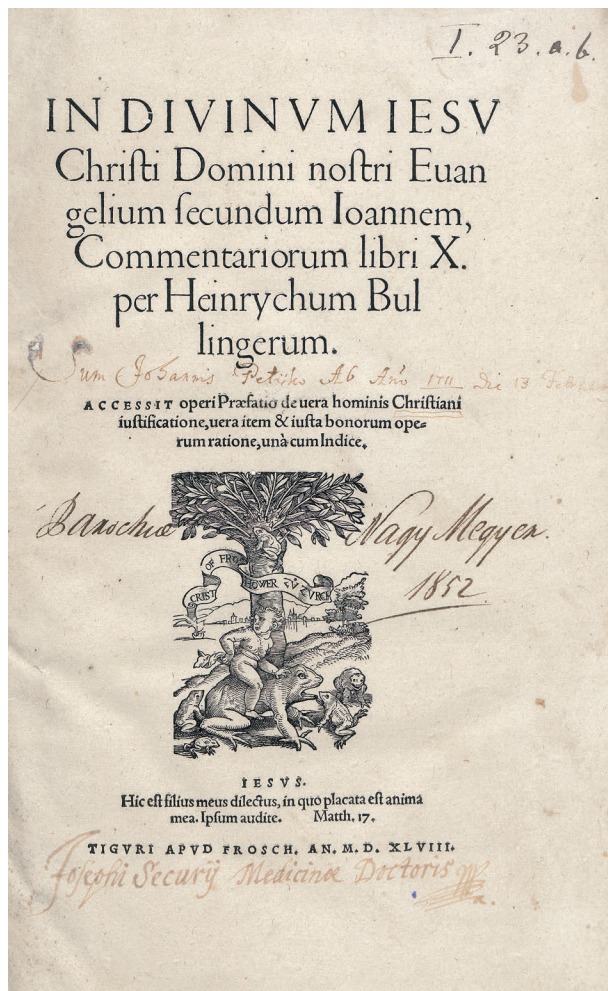 I. 23. a. b.
IN DIVINVM IESV
Chriſti Domini noſtri Euan
gelium ſecundum Ioannem,
Commentariorum libri X.
per Heinrychum Bul
lingerum.
Sum Johannis Ab Año 1711 Die 13
ACCESSIT operi Præfatio de uera hominis Chriſtiani
iuſtificatione, uera item & iuſta bonorum ope-
rum ratione, unà cum Indice.
Nagy Megyer.
1852.
CRIST OF FRO HOWER ZV ZVRCE
IESVS.
Hic eſt filius meus dilectus, in quo placata eſt anima
mea. Ipſum audite. Matth. 17.
TIGVRI APVD FROSCH. AN. M. D. XLVIII.
Josephi Securij Medicinæ Doctoris